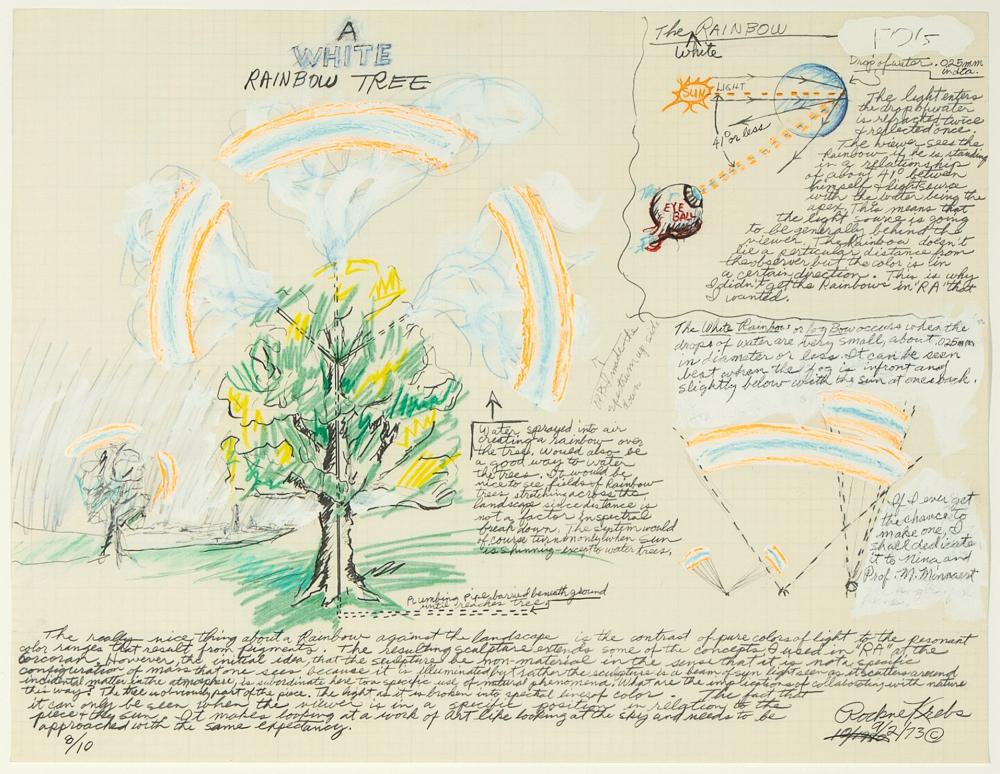 A
WHITE
RAINBOW TREE
The RAINBOW
White
FOG
Drop of water .025mm
in dia.
SUN
LIGHT
41° or less
EYE
BALL
The light enters
the drop of water
is refracted twice
& reflected once.
The viewer sees the
Rainbow if he is standing
in a relationship
of about 41° between
himself & light source
with the water being the
apex. This means that
the light source is going
to be generally behind the
viewer. The Rainbow doesn't
lie a particular distance from
the observer but the color is in
a certain direction. This is why
I didn't get the Rainbows in "RA" that
I wanted.
The White Rainbow or Fog Bow occurs when the
drops of water are very small, about .025mm
in diameter or less. It can be seen
best when the fog is in front and
slightly below with the Sun at ones back.
Water sprayed into air
creating a rainbow over
the tree. Would also be
a good way to water
the trees. It would be
nice to see fields of Rainbow
trees stretching across the
landscape since distance is
not a factor in spectral
break down. The system would
of course turn on only when sun
is shinning - except to water trees.
If I ever get
the chance to
make one, I
shall dedicate
it to Nina and
Prof. M. Minnaert
Plumbing Pipe buried beneath ground
until reaches tree
The really nice thing about a Rainbow against the landscape is the contrast of pure colors of light to the resonant
color ranges that result from pigments. The resulting sculpture extends some of the concepts I used in "RA" at the
Corcoran. However the initial idea, that the sculpture be non-material in the sense that it is not a specific
configuration of mass that one sees because it is illuminated by light rather the sculpture is a beam of sun light seen as it scatters around
incidental matter in the atmosphere, is subordinate here to a specific use of natural phenomena. What are the implications of collaborating with nature
this way? The tree is obviously part of the piece. The light as it is broken into spectral lines of color The fact that
it can only be seen when the viewer is in a specific position in relation to the
piece & the sun. It makes looking at a work of Art like looking at the sky and needs to be
approached with the same expectancy.
8/10
Rockne Krebs
9/2/73 ©